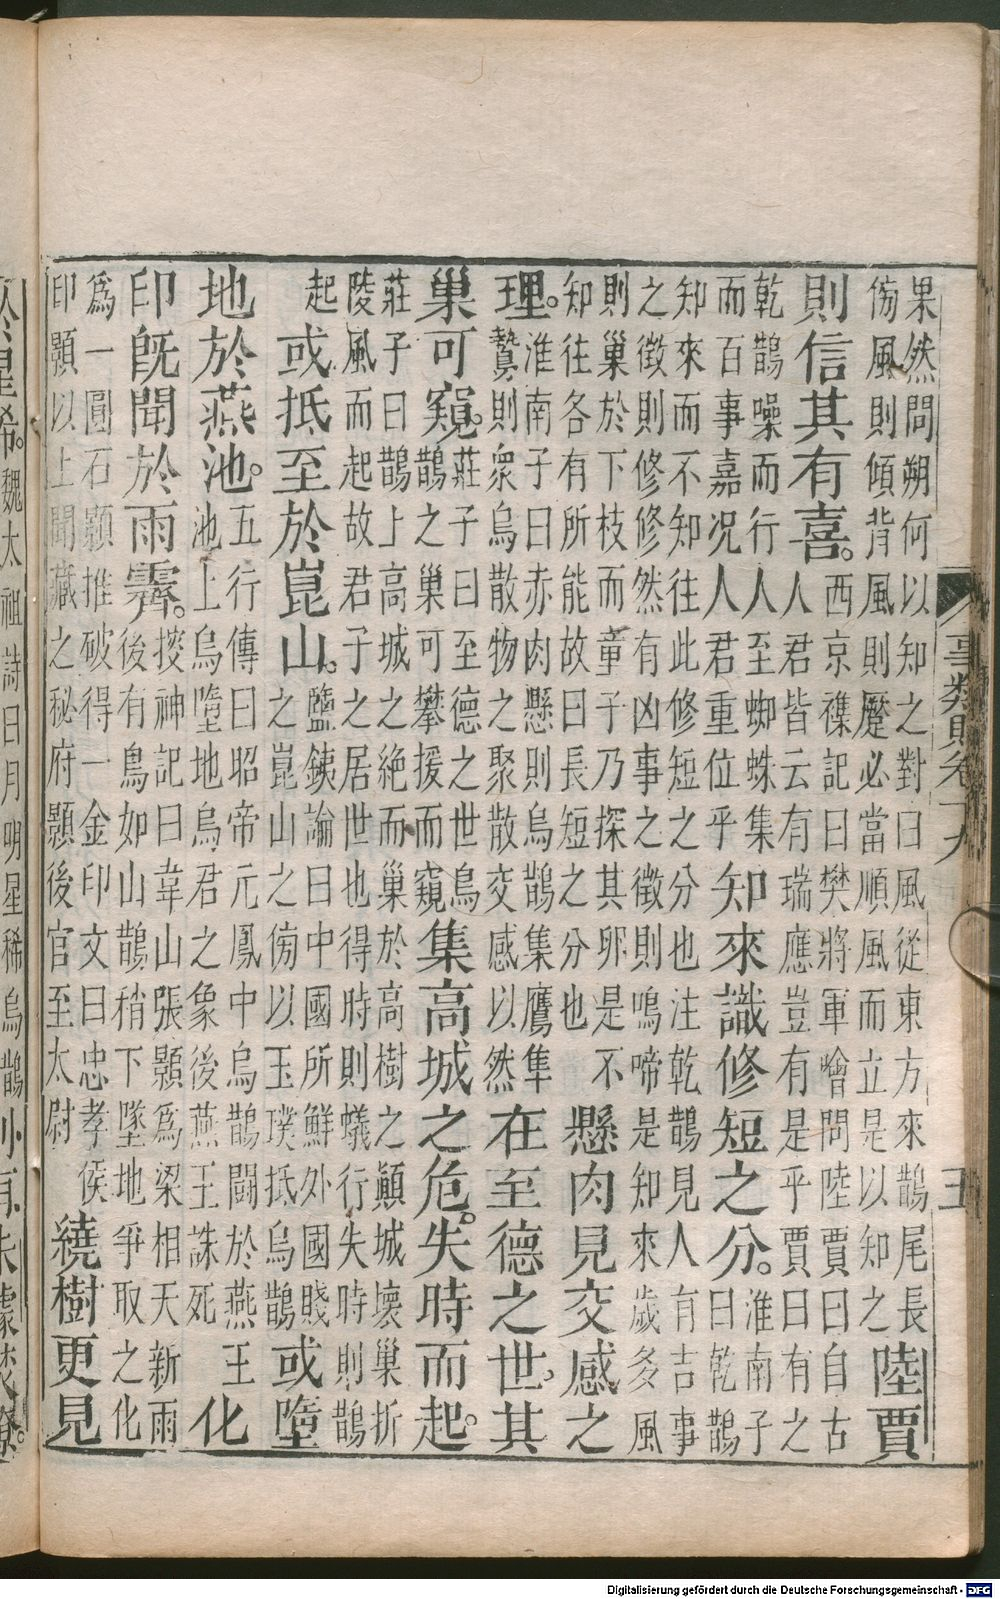 果然問朔何以知之對曰風從東方來鵲尾長
傍風則傾背風則蹷必當順風而立是以知之
陸賈
則信其有喜。
西京襍記曰樊將軍噲問陸賈曰自古
人君皆云有瑞應豈有是乎賈曰有之
乾鵲噪而行人至蜘蛛集
而百事嘉况人君重位乎
知來識修短之分。
淮南子
曰乾鵲
知來而不知往此修短之分也注乾鵲見人有吉事
之徵則修修然有凶事之徵則鳴啼是知來歲多風
則巢於下枝而童子乃探其卵是不
知往各有所能故曰長短之分也
懸肉見交感之
理。
淮南子曰赤肉懸則烏鵲集鷹隼
鷙則衆烏散物之聚散交感以然
在至德之世。其
巢可窺。
莊子曰至德之世烏
鵲之巢可攀援而窺
集高城之危。失時而起。
莊子曰鵲上高城之絶而巢於高樹之顚城壊巢折
陵風而起故君子之居世也得時則蟻行失時則鵲
起
或抵至於崑山。
鹽鐵論曰中國所鮮外國賤
之崑山之傍以玉璞抵烏鵲
或墮
地於燕池。
五行傳曰昭帝元鳳中烏鵲鬪於燕王
池上烏墮地烏君之象後燕王誅死
化
印旣聞於雨霽。
搜神記曰韋山張顥爲梁相天新雨
後有鳥如山鵲稍下墜地爭取之化
爲一圓石顥推破得一金印文曰忠孝侯
印顥以上聞藏之秘府顥後官至太尉
繞樹更見
於星稀。
魏太祖詩曰月明星稀烏鵲
事類賦卷十九
五
Digitalisierung gefördert durch die Deutsche Forschungsgemeinschaft - DFG